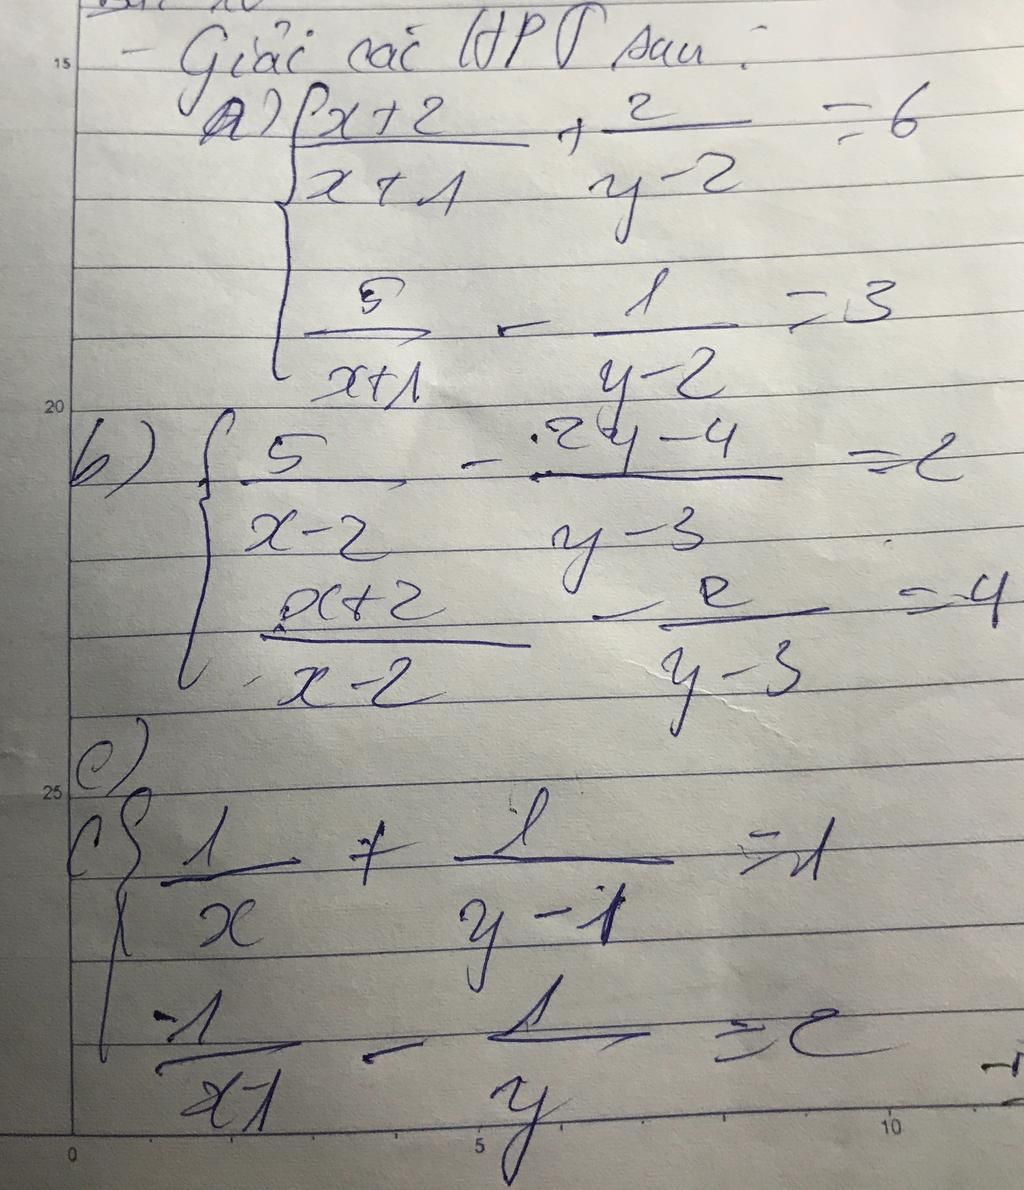 - Giải các HPT sau :
15
a) { x+2/x+1 + 2/y-2 = 6
5/x+1 - 1/y-2 = 3
20
b) { 5/x-2 - 2y-4/y-3 = 2
x+2/x-2 - 2/y-3 = 4
c)
25
c { 1/x + 1/y-1 = 1
-1/x-1 - 1/y = 2
0 5 10